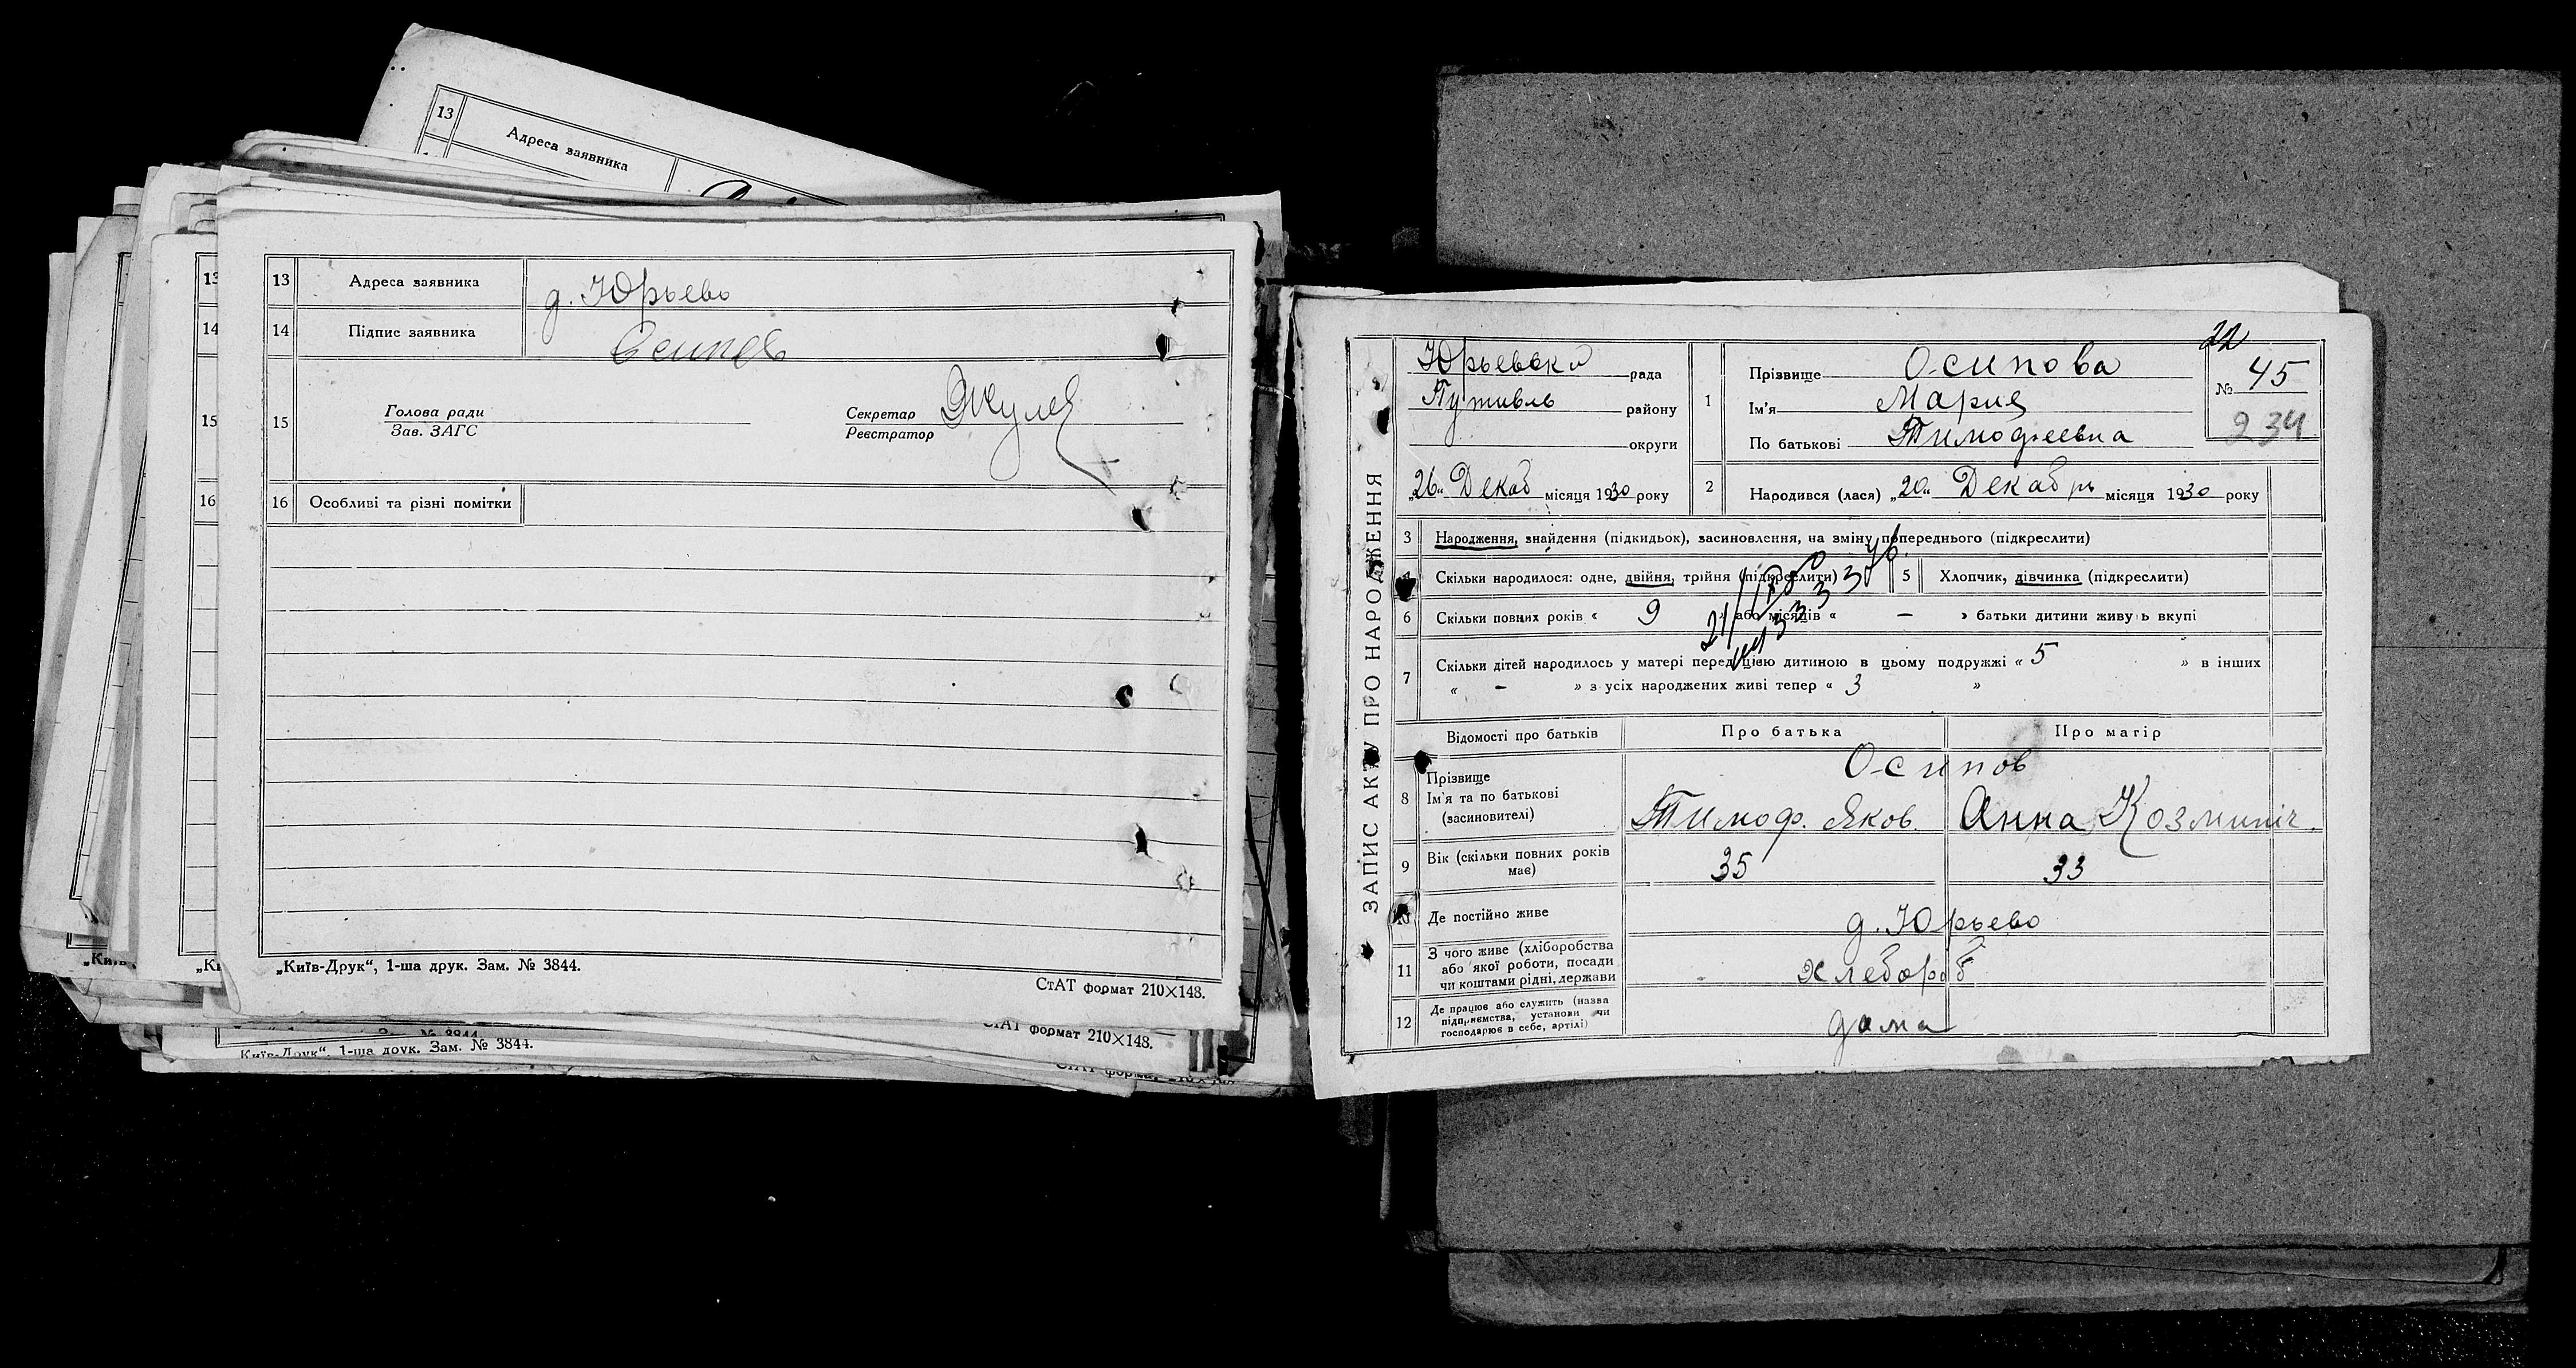 13
Адреса заявника
13
14
15
16
13 Адреса заявника д. Юрьево
14 Підпис заявника Осипов
15 Голова ради Секретар
Зав. ЗАГС Реєстратор
16 Особливі та різні помітки
„Київ-Друк“, 1-ша друк. Зам. № 3844.
СтАТ формат 210×148.
„Київ-Друк“, 1-ша друк. Зам. № 3844.
СтАТ формат 210×148.
ЗАПИС АКТУ ПРО НАРОДЖЕННЯ
Юрьевска рада
Путивль району
округи
„26“ Декаб місяця 1930 року
22
1 Прізвище Осипова
Ім'я Мария
По батькові Тимофеевна
№ 45
234
2 Народився (лася) „20“ Декабрь місяця 1930 року
3 Народження, знайдення (підкидьок), засиновлення, на зміну попереднього (підкреслити)
4 Скільки народилося: одне, двійня, трійня (підкреслити) 5 Хлопчик, дівчинка (підкреслити)
6 Скільки повних років « 9 » або місяців « — » батьки дитини живуть вкупі
7 Скільки дітей народилось у матері перед цією дитиною в цьому подружжі « 5 » в інших
« - » з усіх народжених живі тепер « 3 »
Відомості про батьків Про батька Про матір
8 Прізвище Осипов
Ім'я та по батькові
(засиновителі) Тимоф. Яков. Анна
9 Вік (скільки повних років має) 35 33
10 Де постійно живе д. Юрьево
11 З чого живе (хліборобства
або якої роботи, посади
чи коштами рідні, держави хлебороб
12 Де працює або служить (назва
підприємства, установи чи
господарює в себе, артілі) дома